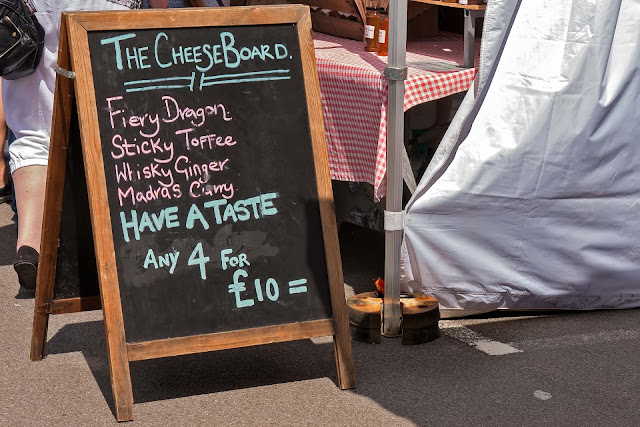 THE CHEESEBOARD.
Fiery Dragon
Sticky Toffee
Whisky Ginger
Madras Curry
HAVE A TASTE
ANY 4 FOR
£10 =